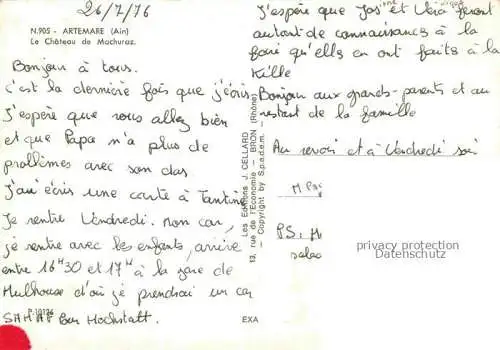 26/7/76
N.905 - ARTEMARE (Ain)
Le Château de Machuraz.
Bonjour à tous.
c'est la dernière fois que j'écris
J'espère que vous allez bien
et que Papa n'a plus de
problèmes avec son dos
J'ai écris une carte à Tantine
Je rentre Vendredi. mon car,
je rentre avec les enfants, arrive
entre 16H30 et 17H à la gare de
Mulhouse d'où je prendrai un car
pour Hochstatt.
P.10126
J'espère que José et Véra feront
autant de connaissances à la
foire qu'elles en ont faits à la
Bonjour aux grands-parents et au
restant de la famille
Au revoir et à Vendredi soir
Les Editions J. CELLARD
13, rue de l'Economie - BRON (Rhône)
Copyright by S.p.a.d.e.m.
EXA
PS:
privacy protection
Datenschutz